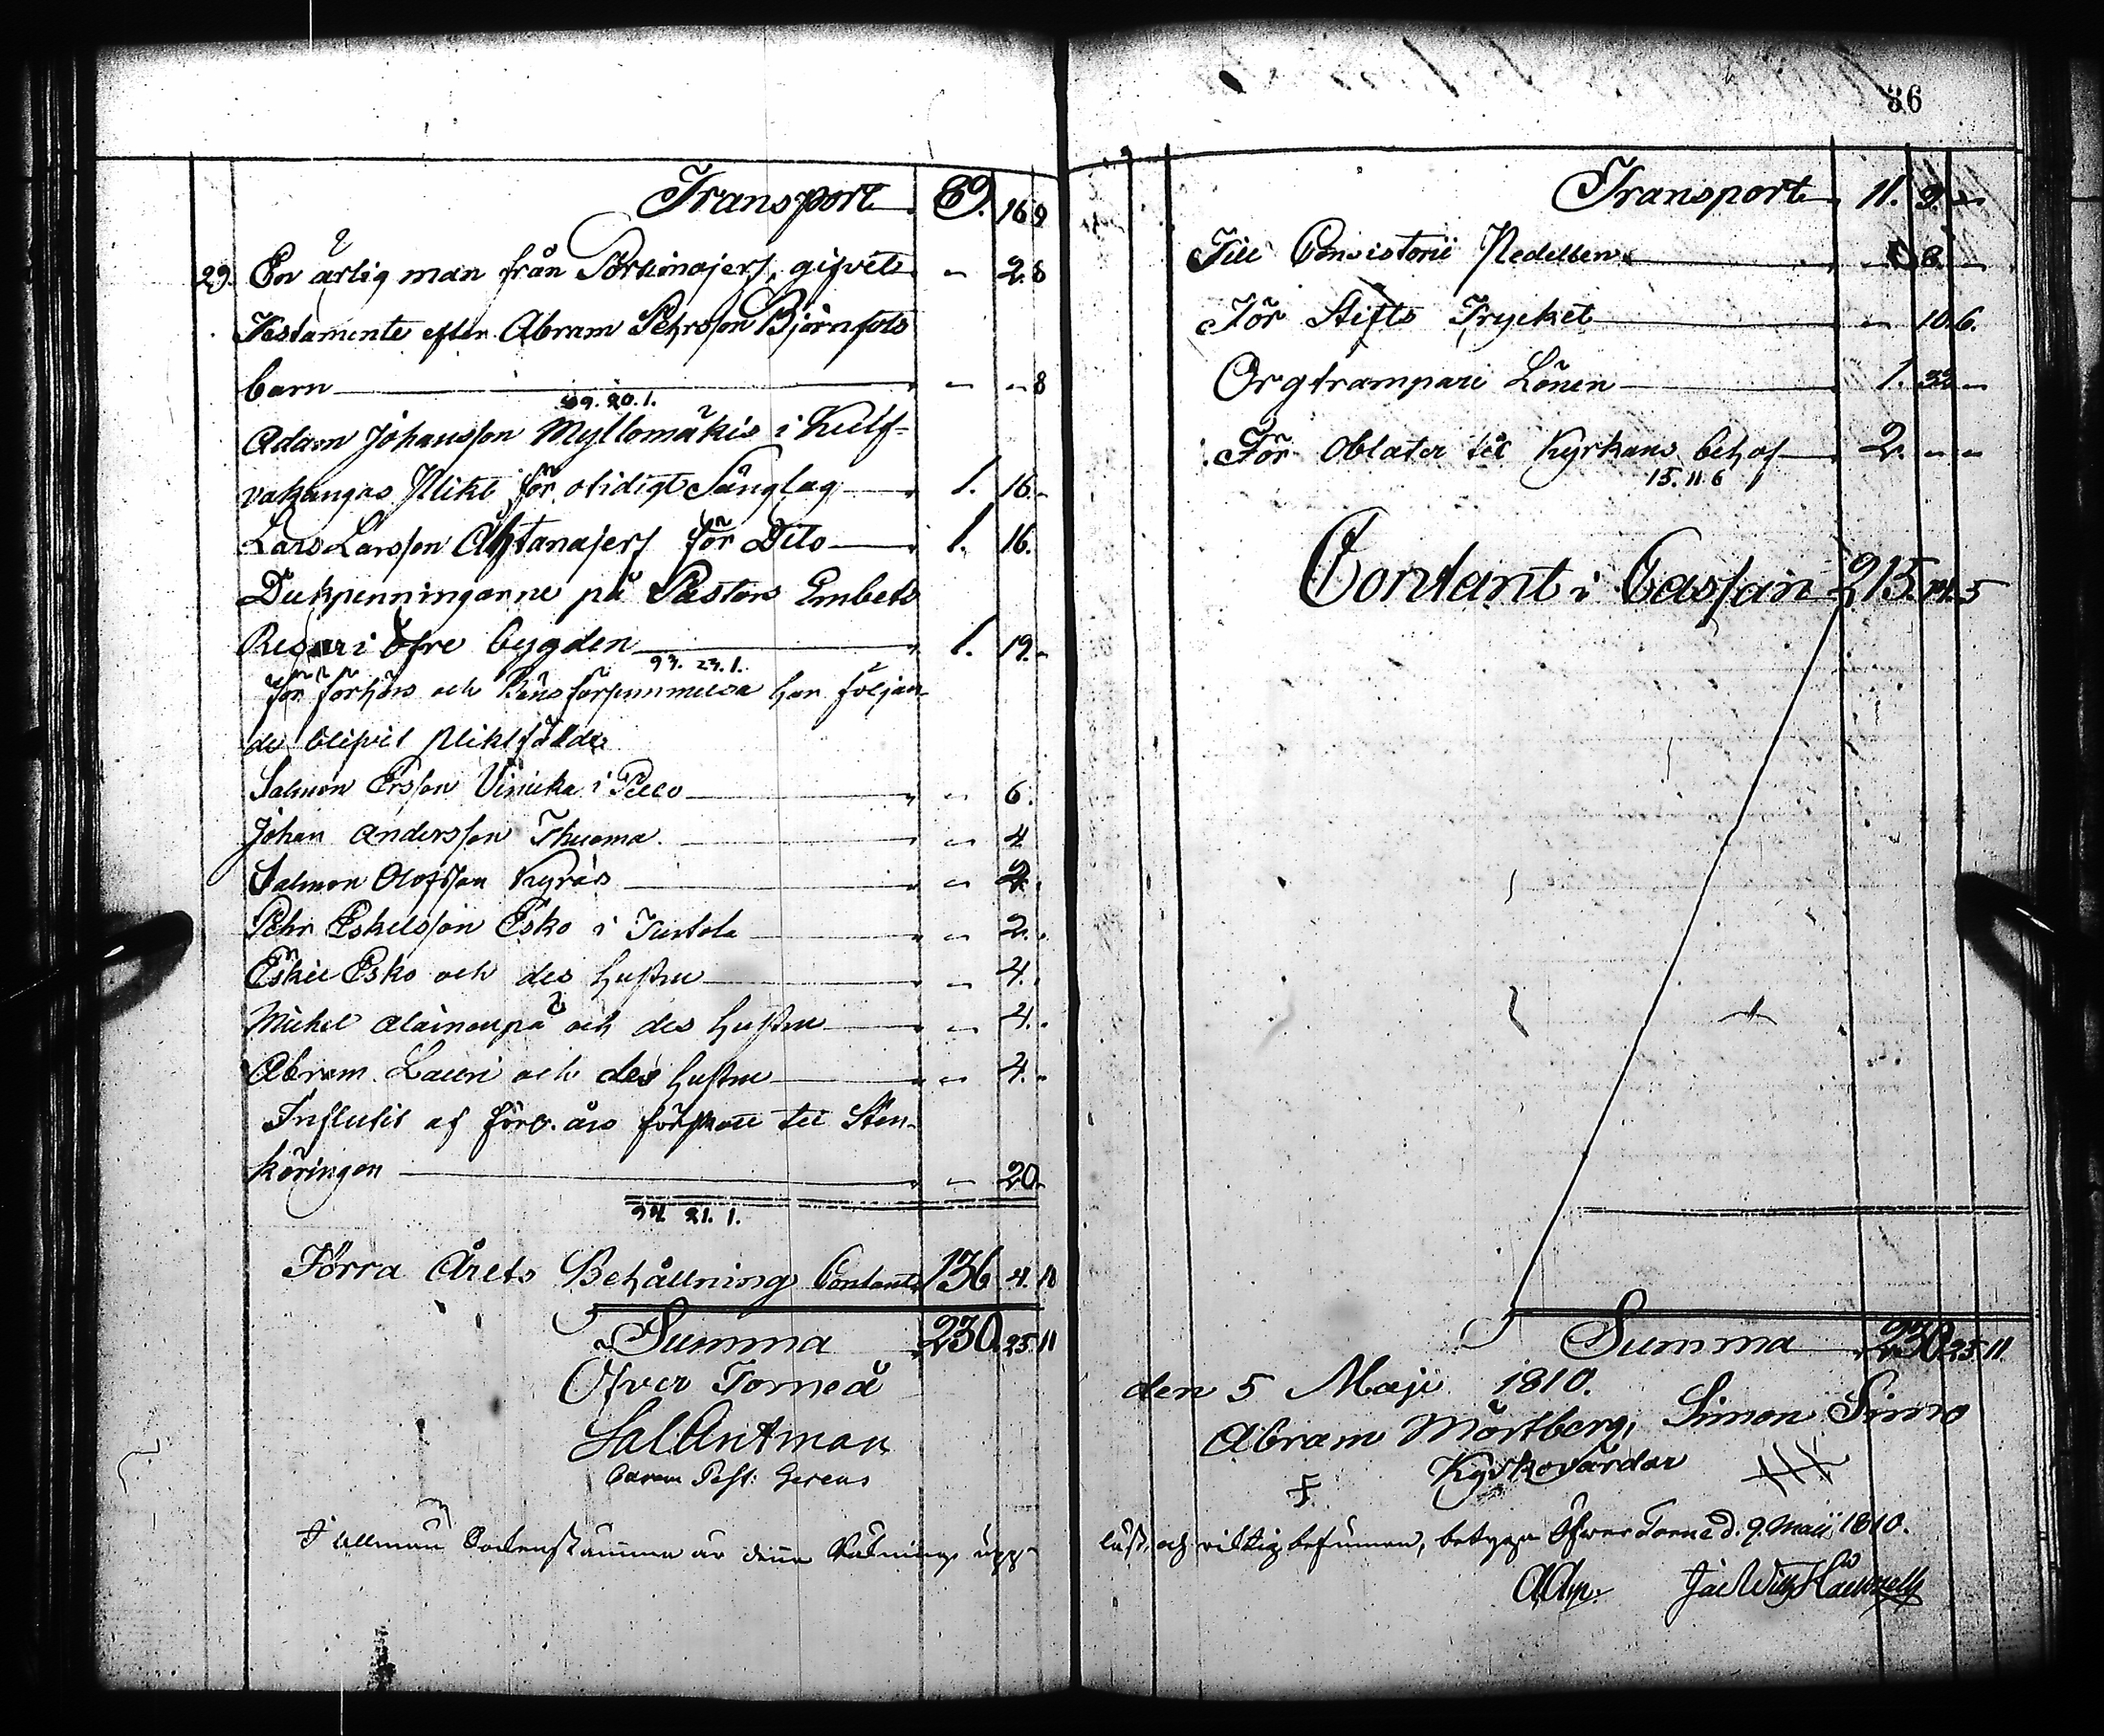 Transport 89. 16 9
29. En ärlig man från Porkinajerf, gifvit - 2. 8
Testamente efter Abram Pehrsson Björnfots
barn - - 8
89. 20. 1.
Adam Johansson Myllomäkis i Kulf-
vakangas Plikt för otidigt Sänglag 1. 16. -
Lars Larsson Ahtanajerf för Dito 1. 16.
Dukpenningarne på Pastors Embets
Resor i Öfre bygden 1. 19. -
93. 23. 1.
för förhörs och försummelsa har följan-
de blifvit Pliktfälde
Salmon Ersson Vinicka i Pello - 6.
Johan Andersson Thuoma - 4
Salmon Olofsson Kyrös - 2.
Pehr Eskelsson Esko i Turtola - 2. -
Eskil Esko och des hustru - 4. -
Michel Alainenpä och des hustru - 4. -
Abram Lauri och des hustru - 4. -
Influtit af förl. års förskott til Sten-
köringen - 20 -
94 21. 1.
Förra Årets Behållning Contant 136 4. 10
Summa 230. 25 11
Öfver Torneå
Sal Antman
Past: Gerens
I allmän Sockenstämma är denna Räkning upp-
36
Transport 11. 9. -
Till Consistorii Nedelben - 8. -
För Stifts Trycket - 10. 6.
Orgtrampare Lönen 1. 32 -
För Oblater til Kyrkans behof 2. - -
15. 11 6
Contant i Cassan 215. 14. 5
Summa 230 25 11.
den 5 Maji 1810.
Abram Mörtberg, Simon Simo
Kyrkovärdar
läst, och riktig befunnen, betygar Öfver Torneå d. 9. Maii 1810.